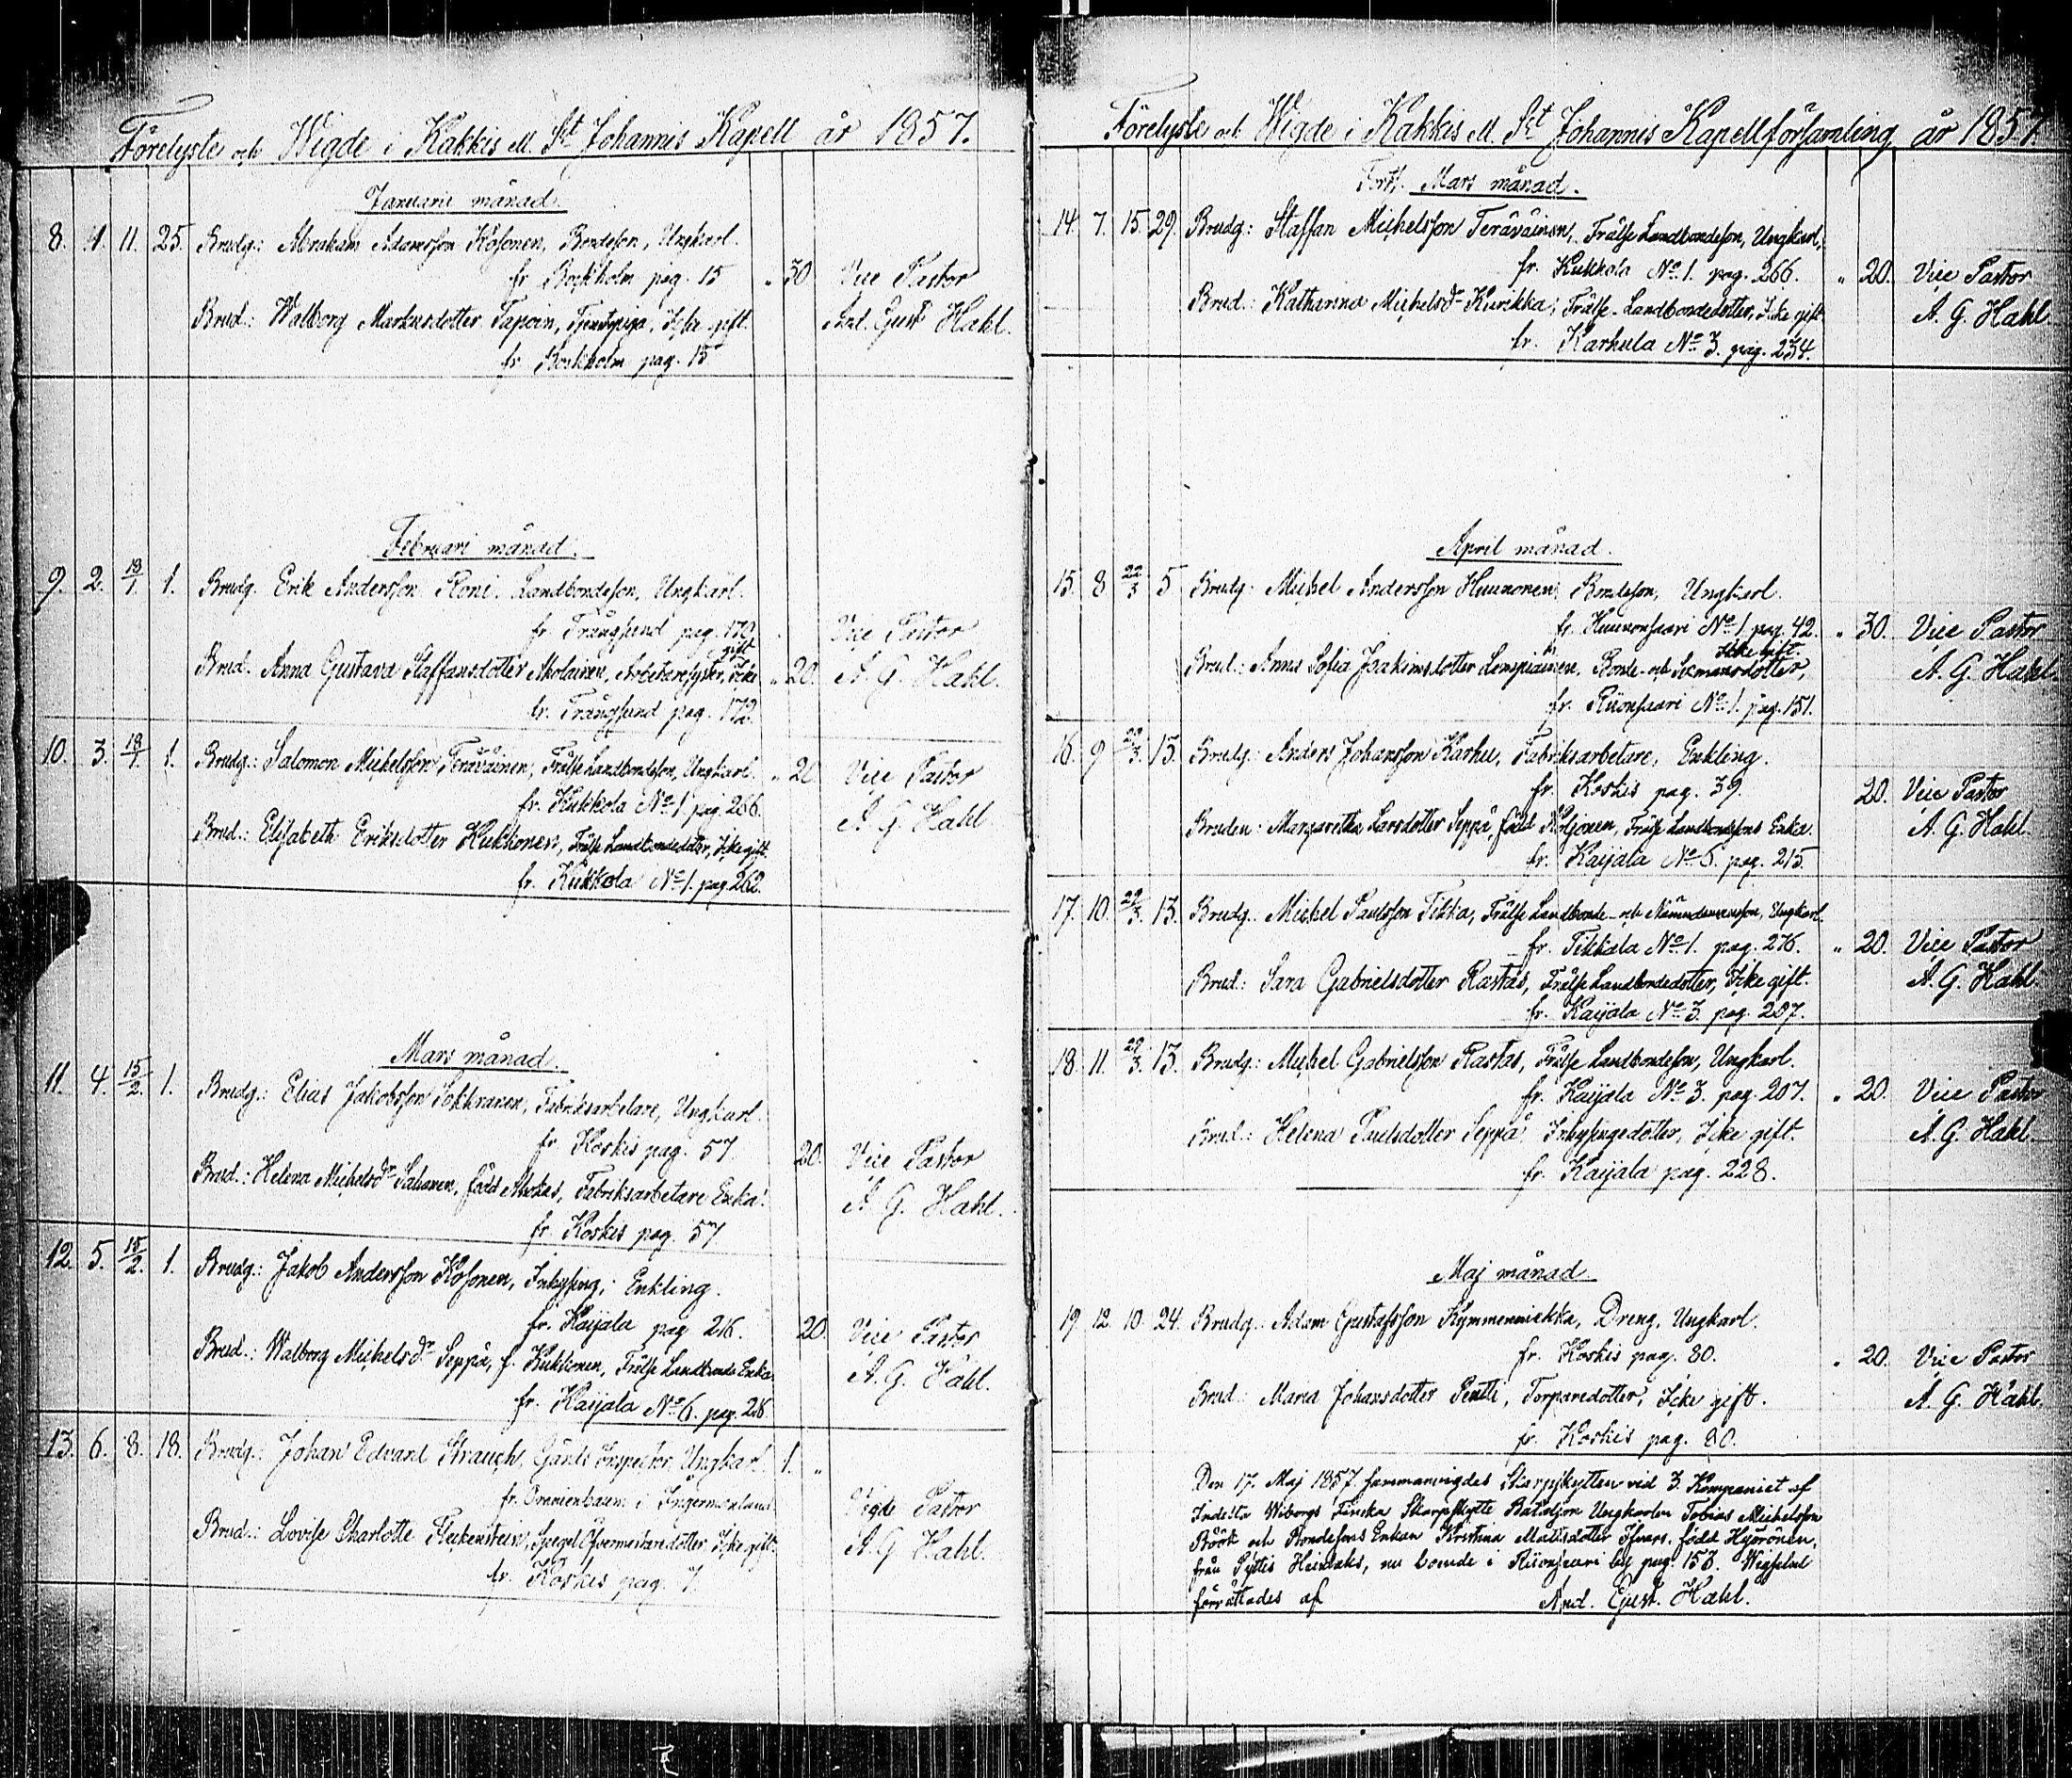 Förelyste och Wigde i Kakkis M. St Johannis Kapell år 1857.
Januarii månad.
8. 1. 11. 25. Brudg.: Abraham Adamsson Kosonen, Bondeson, Ungkarl.
fr. Bockholm pag. 15 " 30 Vice Pastor
Brud.: Walborg Markusdotter Tapoin, Tjenstpiga, Icke gift. And. Gust Hahl.
fr. Bockholm pag. 15
Februari månad.
9. 2. 18/1. 1. Brudg. Erik Andersson Roni, Landbondeson, Ungkarl.
fr. Trångsund pag. 172. Vice Pastor
gift
Brud. Anna Gustava Staffansdotter, Arbetaresyster, Icke " 20. A. G. Hahl.
fr. Trångsund pag. 172.
10. 3. 18/1. 1. Brudg.: Salomon Michelsson Teräväinen, Frälse Landbondeson, Ungkarl. " 20 Vice Pastor
fr. Kukkola No 1 pag. 266.
A. G. Hahl
Brud.: Elisabeth Eriksdotter Kukkonen, Frälse Landbondedotter, Icke gift.
fr. Kukkola No 1. pag. 262.
Mars månad.
11. 4. 15/2. 1. Brudg.: Elias Jakobsson Sokkranen, Fabriksarbetare, Ungkarl.
fr. Koskis pag. 57. 20. Vice Pastor
Brud.: Helena Michelsdr Salianen, född, Fabriksarbetare Enka. A. G. Hahl.
fr. Koskis pag. 57
12. 5. 15/2. 1. Brudg.: Jakob Andersson Kosonen, Inhysing, Enkling.
fr. Kaijala pag 216. 20. Vice Pastor
Brud.: Walborg Michelsdr Seppä, f. Kukkonen, Frälse Landbonde Enka. A. G. Hahl.
fr. Kaijala No 6. pag. 216.
13. 6. 8. 18. Brudg.: Johan Edvard Strauch, Gårds Inspector, Ungkarl. 1. "
fr. Oranienbaum i Ingermanland. Vigde Pastor
Brud.: Lovise Charlotte Fleckenstein, Spegel Öfvermästaredotter Icke gift. A. G. Hahl.
fr. Koskis pag. 7.
Förelyste och Wigde i Kakkis M. St Johannis Kapellförsamling år 1857.
Forts. Mars månad.
14. 7. 15. 29. Brudg: Staffan Michelsson Teräväinen, Frälse Landbondeson, Ungkarl,
fr. Kukkola No 1. pag. 266. " 20. Vice Pastor
Brud.: Katharina Michelsdr Kurikka, Frälse Landbondedotter, Icke gift A. G. Hahl
fr. Karhula No 3. pag. 234.
April månad.
15. 8 22/3 5 Brudg. Michel Andersson Huunonen, Bondeson, Ungkarl.
fr. Huunonsaari No 1. pag. 42. " 30. Vice Pastor
Icke gift.
Brud.: Anna Sofia Joakimsdotter Lempiäinen, Bonde- och Sexmansdotter, A. G. Hahl
fr. Riionsaari No 1. pag. 151.
16. 9 29/3. 13. Brudg. Anders Johansson Karhu, Fabriksarbetare, Enkling.
fr. Koskis pag. 39. 20. Vice Pastor
Bruden: Margaretha Larsdotter Seppä, född Koljonen, Frälse Landbondesons Enka. A. G. Hahl.
fr. Kaijala No 6. pag. 215.
17. 10. 29/3. 13. Brudg. Michel Paulsson Tikka, Frälse Landbonde- och Nämndemansson, Ungkarl.
fr. Tikkala No 1. pag. 276. " 20. Vice Pastor
Brud.: Sara Gabrielsdotter Rastas, Frälse Landbondedotter, Icke gift. A. G. Hahl
fr. Kaijala No 3. pag. 207.
18. 11. 29/3. 13. Brudg.: Michel Gabrielsson Rastas, Frälse Landbondeson, Ungkarl.
fr. Kaijala No 3. pag. 207. " 20. Vice Pastor
Brud.: Helena Paulsdotter Seppä, Inhysingedotter, Icke gift. A. G. Hahl.
fr. Kaijala pag. 228.
Maj månad
19. 12. 10. 24. Brudg.: Adam Gustafsson Kymmenniekka, Dreng, Ungkarl.
fr. Koskis pag. 80. " 20. Vice Pastor
Brud: Maria Johansdotter Pentti, Torparedotter, Icke gift. A. G. Hahl
fr. Koskis pag. 80.
Den 17. Maj 1857 sammanvigdes Skarpskytten vid 3. Kompaniet af
Indelta Wiborgs Finska Skarpskytte Bataljon Ungkarlen Tobias Michelsson
Röök och Bondesons Enkan Kristina Mattsdotter, född Hyörönen,
från Pyttis Heinlaks, nu boende i Riionsaari by pag. 153. Wigseln
förrättades af And. Gust. Hahl.